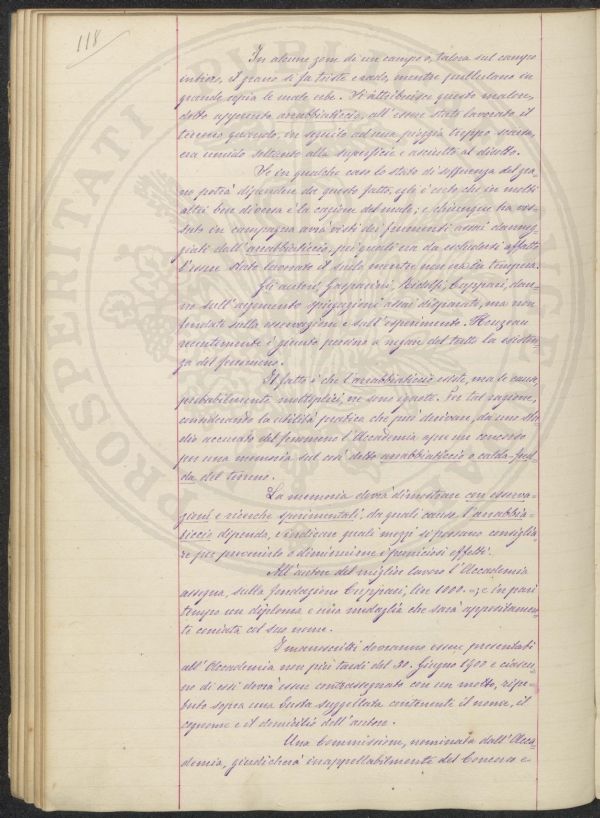 118
In alcune zone di un campo o, talora sul campo
intiero, il grano si fa triste e rado, mentre pullulano in
grande copia le male erbe. Si attribuisce questo malore,
detto appunto arrabbiaticcio, all'esser stato lavorato il
terreno quando, in seguito ad una pioggia troppo scarsa,
era umido soltanto alla superficie e asciutto al disotto.
Se in qualche caso lo stato di sofferenza del gra-
no potrà dipendere da questo fatto, egli è certo che in molti
altri ben diversa è la cagione del male; e chiunque ha vis-
suto in campagna avrà visti dei frumenti assai danneg-
giati dall'arrabbiaticcio, pei quali era da escludersi affatto
l'esser stato lavorato il suolo mentre non era in tempera.
Gli autori, Gasparini, Ridolfi, Cuppari, dan-
no sull'argomento spiegazioni assai disparate, ma non
fondate sulla osservazione e sull'esperimento.
recentemente è giunto persino a negare del tutto la esisten-
za del fenomeno.
Il fatto è che l'arrabbiaticcio esiste, ma le cause,
probabilmente molteplici, ne sono ignote. Per tal ragione,
considerando la utilità pratica che può derivare, da uno stu-
dio accurato del fenomeno l'Accademia apre un concorso
per una memoria sul così detto arrabbiaticcio o calda-fred-
da del terreno.
La memoria dovrà dimostrare con osserva-
zioni e ricerche sperimentali, da quali cause l'arrabbia-
ticcio dipenda, e indicare quali mezzi si possano consiglia-
re per prevenirlo o diminuirne i perniciosi effetti.
All'autore del miglior lavoro l'Accademia
assegna, sulla fondazione Cuppari, lire 1000.=; e in pari
tempo un diploma e una medaglia che sarà appositamen-
te coniata col suo nome.
I manoscritti dovranno essere presentati
all'Accademia non più tardi del 30. Giugno 1900 e ciascu-
no di essi dovrà esser contrassegnato con un motto, ripe-
tuto sopra una busta suggellata contenente il nome, il
cognome e il domicilio dell'autore.
Una Commissione, nominata dall'Acca-
demia, giudicherà inappellabilmente del Concorso e
PROSPERITATI PUBLICAE AUCTAE